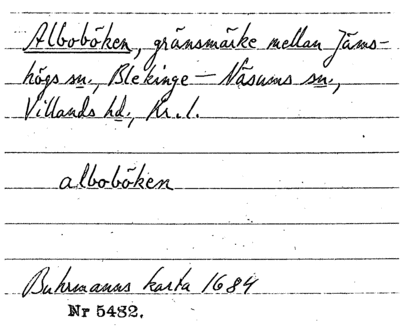 Alboböken, gränsmärke mellan Jäms-
högs sn., Blekinge — Näsums sn.,
Villands hd., Kr. l.
alboböken
Buhrmanns karta 1684
Nr 5482.